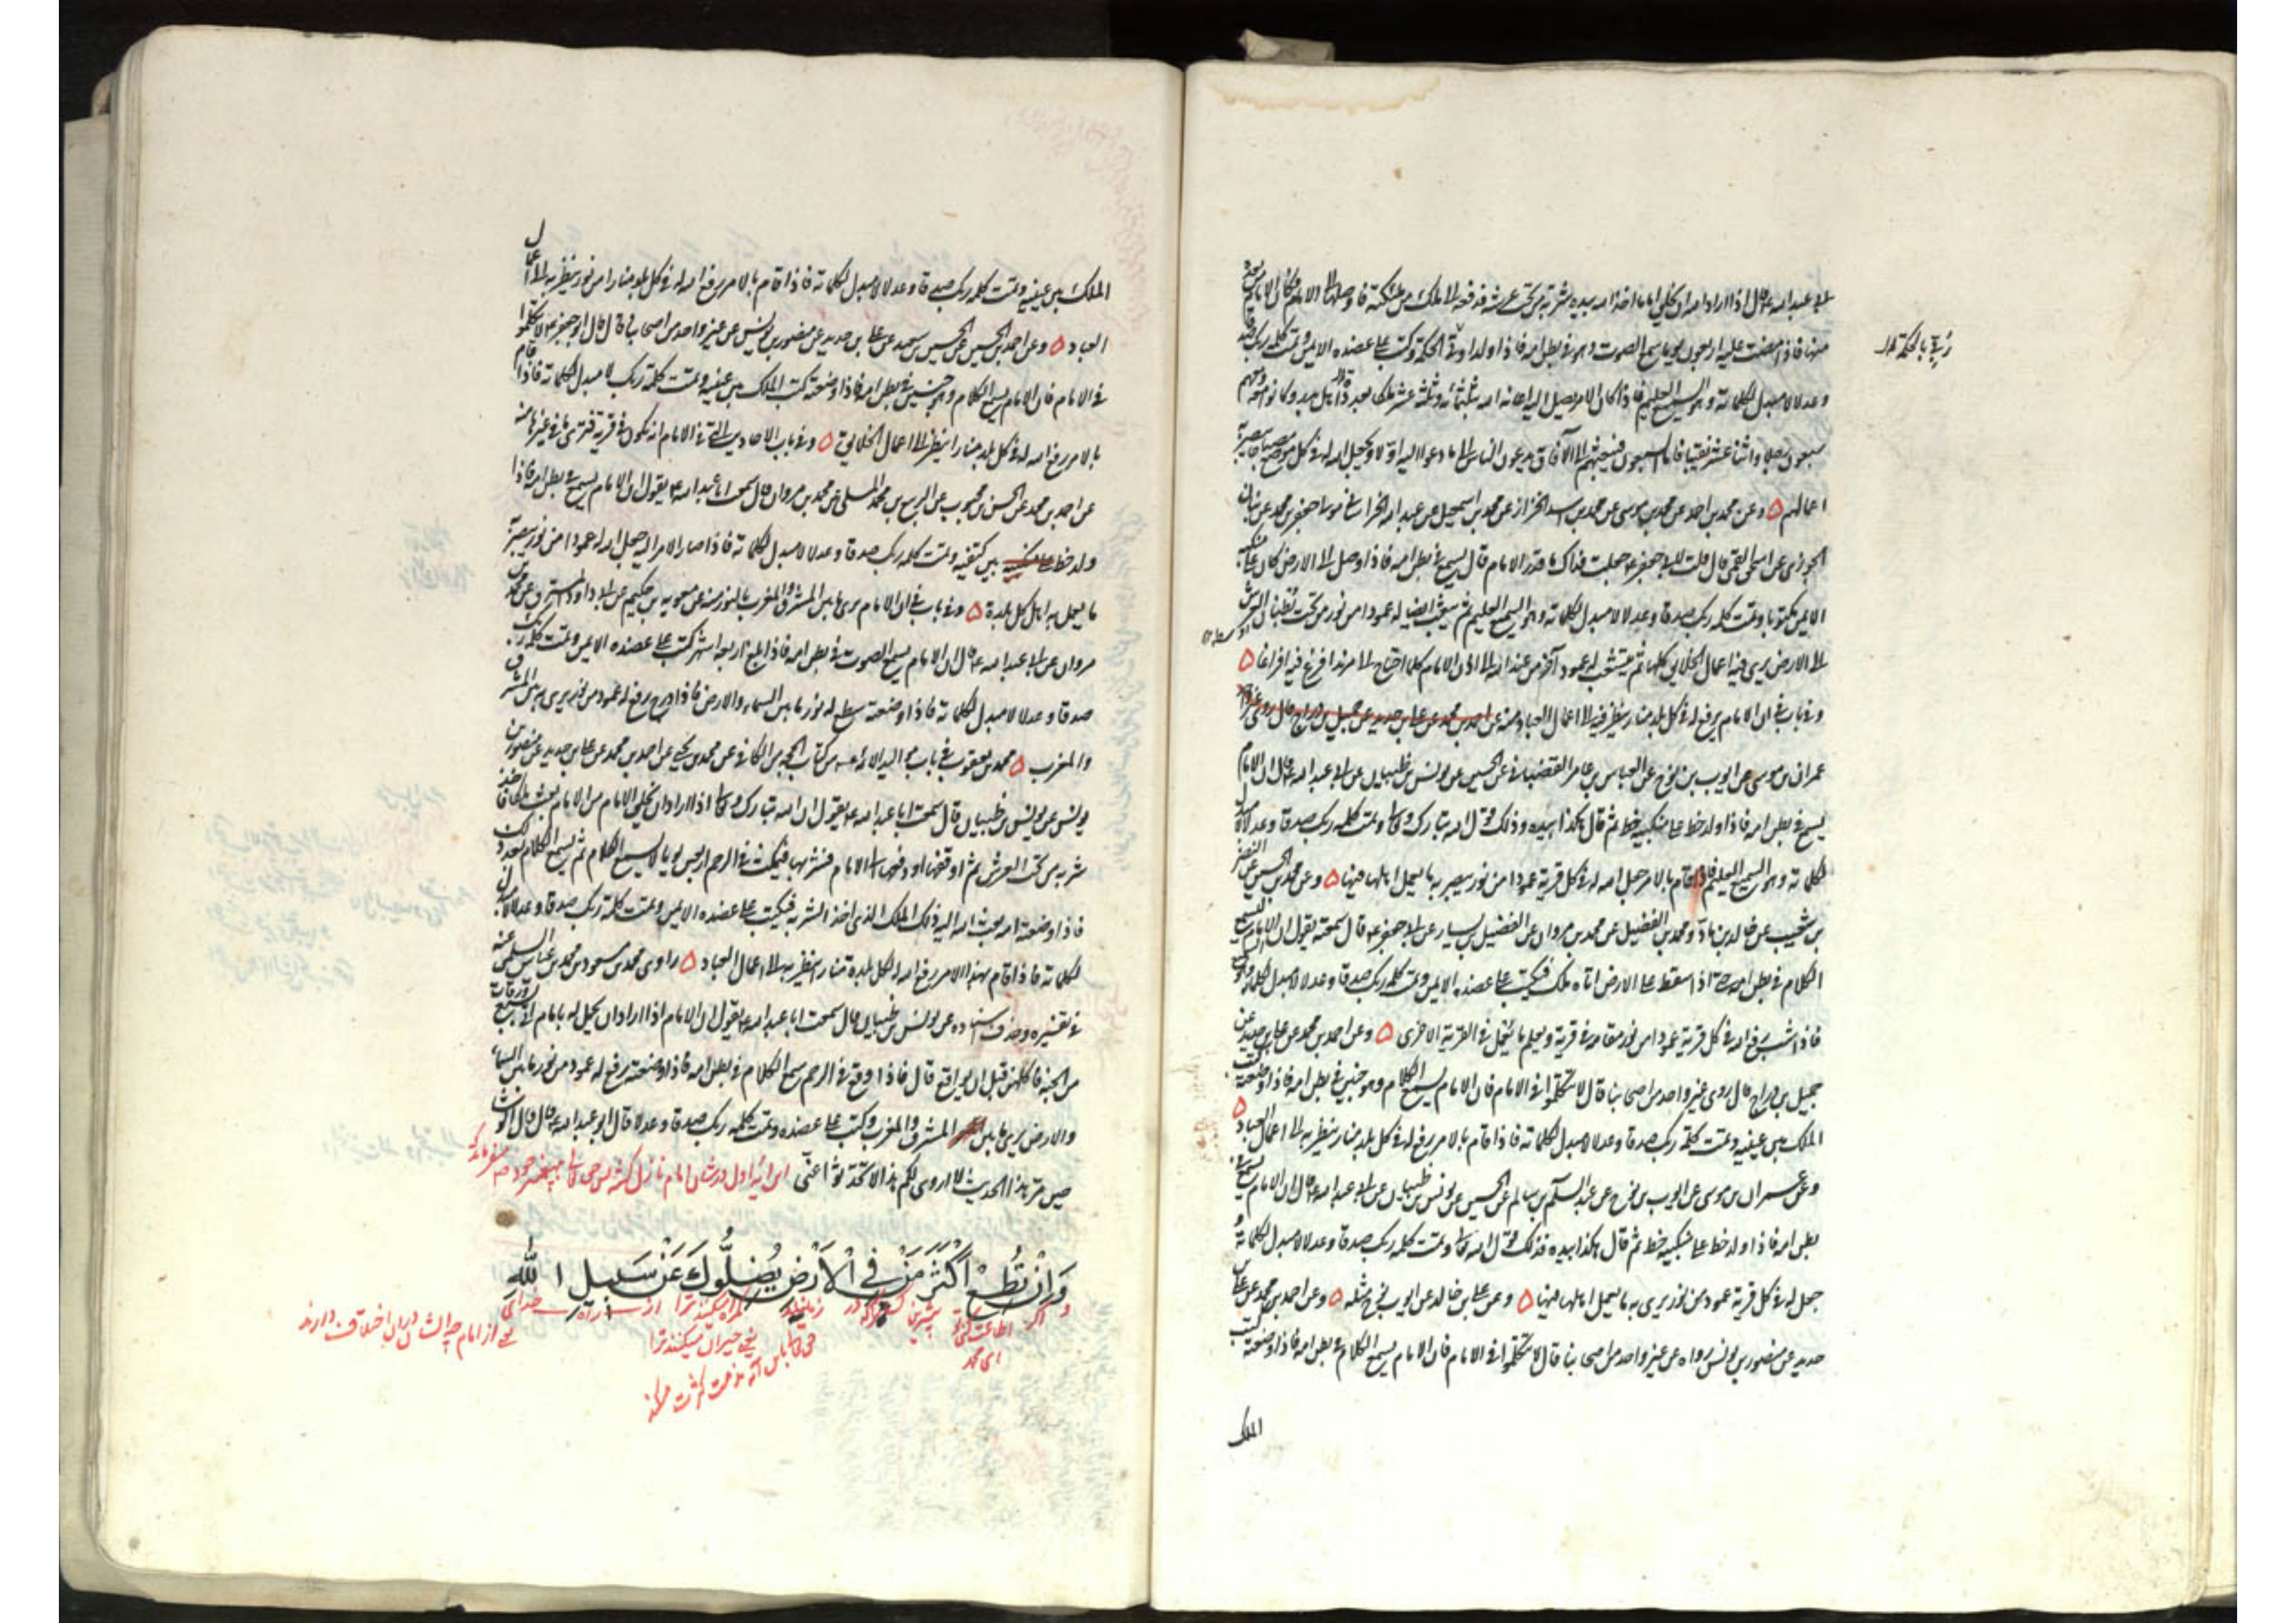 ابى عبد الله ع قال اذا اراد الله ان يخلق اماما اخذ الله بيده شربة من تحت عرشه فدفعه الى ملك من ملئكته فاوصلها الى الامام فكان الامام من بعده
منها فاذا مضت عليه اربعون يوما سمع الصوت وهو فى بطن امه فاذا ولد اوتى الحكمة وكتب على عضده الايمن وتمت كلمة ربك صدقا
زين بالحكمة
وعدلا لا مبدل لكلماته وهو السميع العليم فاذا كان الامر يصل اليه اعانه الله بثلثمائة وثلثة عشر ملكا بعدد اهل بدر وكانوا معهم
سبعون رجلا واثنا عشر نقيبا فاما السبعون فيبعثهم الى الآفاق يدعون الناس الى ما دعوا اليه اولا ويجعل الله له فى كل موضع مصباحا يبصر به
اعمالهم ه وعن محمد بن احمد عن محمد بن موسى عن محمد بن اسد الخزاز عن محمد بن اسمعيل عن عبد الله الخراسانى مولى جعفر بن محمد عن بنان
الجوزى عن اسحق القمى قال قلت لابى جعفر ع جعلت فداك ما قدر الامام قال يسمع فى بطن امه فاذا وصل الى الارض كان على منكبه
الايمن مكتوبا وتمت كلمة ربك صدقا وعدلا لا مبدل لكلماته وهو السميع العليم ثم يبعث ايضا له عمودا من نور من تحت بطنان العرش
الى الارض يرى فيه اعمال الخلايق كلها ثم يتشعب له عمود آخر من عند الله الى اذن الامام كلما احتاج الى مزيد افرغ فيه افراغا ه
وفى باب فى ان الامام يرفع له فى كل بلد منار ينظر فيه الى اعمال العباد ومنه عن احمد بن محمد عن على بن حديد عن جميل بن دراج قال روى غير واحد
عمران بن موسى عن ايوب بن نوح عن العباس بن عامر القصبانى عن الحسين عن يونس بن ظبيان عن ابى عبد الله ع قال ان الامام
يسمع فى بطن امه فاذا ولد خط على منكبيه خط ثم قال هكذا بيده وذلك قول الله تبارك وتعالى وتمت كلمة ربك صدقا وعدلا لا مبدل
لكلماته وهو السميع العليم فاذا قام بالامر جعل الله له فى كل قرية عمودا من نور يبصر به ما يعمل اهلها فيها ه وعن محمد بن الحسين عن النضر
بن شعيب عن خالد بن ماد ومحمد بن الفضيل عن محمد بن مروان عن الفضيل بن يسار عن ابى جعفر ع قال سمعته يقول ان الامام يسمع
الكلام فى بطن امه حتى اذا سقط على الارض اتاه ملك فيكتب على عضده الايمن وتمت كلمة ربك صدقا وعدلا لا مبدل لكلماته
فاذا شب رفع الله فى كل قرية عمودا من نور مقامه فى قرية ويعلم ما يعمل فى القرية الاخرى ه وعن احمد بن محمد عن على بن حديد عن
جميل بن دراج قال روى غير واحد من اصحابنا قال لا تتكلموا فى الامام فان الامام يسمع الكلام وهو جنين فى بطن امه فاذا وضعته كتب
الملك بين عينيه وتمت كلمة ربك صدقا وعدلا لا مبدل لكلماته فاذا قام بالامر رفع له فى كل بلد منار ينظر به الى اعمال العباد ه
وعن عمران بن موسى عن ايوب بن نوح عن عبد السلام بن سالم عن الحسين عن يونس بن ظبيان عن ابى عبد الله ع قال ان الامام يسمع فى
بطن امه فاذا ولد خط على منكبيه خط ثم قال هكذا بيده فذلك قول الله تعالى وتمت كلمة ربك صدقا وعدلا لا مبدل لكلماته
جعل له فى كل قرية عمود من نور يرى به ما يعمل اهلها فيها ه وعن على بن خالد عن ايوب بن نوح مثله ه وعن احمد بن محمد عن على بن
حديد عن منصور بن يونس رواه عن غير واحد من اصحابنا قال لا تتكلموا فى الامام فان الامام يسمع الكلام فى بطن امه فاذا وضعته كتب
الملك
الملك بين عينيه وتمت كلمة ربك صدقا وعدلا لا مبدل لكلماته فاذا قام بالامر رفع الله له فى كل بلد منارا من نور ينظر به الى اعمال
العباد ه وعن احمد بن الحسين عن الحسين بن سعيد عن على بن حديد عن منصور بن يونس عن غير واحد من اصحابنا قال قال ابو جعفر ع لا تتكلموا
فى الامام فان الامام يسمع الكلام وهو جنين فى بطن امه فاذا وضعته كتب الملك بين عينيه وتمت كلمة ربك لا مبدل لكلماته فاذا قام
بالامر رفع الله له فى كل بلد منارا ينظر الى اعمال الخلايق ه وفى باب الاحاديث التى فى الامام انه يكون فى قرية فترى ما فى غيرها منه
عن احمد بن محمد عن الحسن بن محبوب عن الربيع بن محمد المسلى عن محمد بن مروان قال سمعت ابا عبد الله ع يقول ان الامام يسمع فى بطن امه فاذا
ولد خط بين كتفيه وتمت كلمة ربك صدقا وعدلا لا مبدل لكلماته فاذا صار الامر اليه جعل الله له عمودا من نور يبصر به
ما يعمل به اهل كل بلدة ه وفى باب فى ان الامام يرى ما بين المشرق والمغرب بالنور منه عن معوية بن حكيم عن ابى داود المسترق عن محمد بن
مروان عن ابى عبد الله ع قال ان الامام يسمع الصوت فى بطن امه فاذا بلغ اربعة اشهر كتب على عضده الايمن وتمت كلمة ربك
صدقا وعدلا لا مبدل لكلماته فاذا وضعته سطع له نور ما بين السماء والارض فاذا درج رفع له عمود من نور يرى به ما بين المشرق
والمغرب ه محمد بن يعقوب فى باب مواليد الائمة من كتاب الحجة من الكافى عن محمد بن يحيى عن احمد بن محمد عن على بن حديد عن منصور بن
يونس عن يونس بن ظبيان قال سمعت ابا عبد الله ع يقول ان الله تبارك وتعالى اذا اراد ان يخلق الامام من الامام بعث ملكا فاخذ
شربة من تحت العرش ثم اوقعها او دفعها الى الامام فشربها فيمكث فى الرحم اربعين يوما لا يسمع الكلام ثم يسمع الكلام بعد ذلك
فاذا وضعته امه بعث الله اليه ذلك الملك الذى اخذ الشربة فيكتب على عضده الايمن وتمت كلمة ربك صدقا وعدلا لا مبدل
لكلماته فاذا قام بهذا الامر رفع الله له لكل بلدة منارا ينظر به الى اعمال العباد ه راوى محمد بن مسعود بن محمد بن عياش السلمى
فى تفسيره وحذف اسناده عن يونس بن ظبيان قال سمعت ابا عبد الله ع يقول ان الامام اذا اراد ان يحمل له بامام اتى بسبع ورقات
من الجنة فاكلهن قبل ان يواقع قال فاذا وقع فى الرحم سمع الكلام فى بطن امه فاذا وضعته رفع له عمود من نور ما بين السماء
والارض يرى ما بين المشرق والمغرب وكتب على عضده وتمت كلمة ربك صدقا وعدلا قال ابو عبد الله ع قال قال الوشاء
حين مر بهذا الحديث لا اروى لكم هذا لا تحدثوا عنى اين آيه اول در شان امام نازل
وَاِنْ تُطِعْ اَكْثَرَ مَنْ فِى الْاَرْضِ يُضِلُّوكَ عَنْ سَبِيلِ اللهِ
و اگر اطاعت كنى بيشترين در زمين گمراه ميكنند ترا از راه خداى
اى محمد
يعنى حيران ميكنند ترا